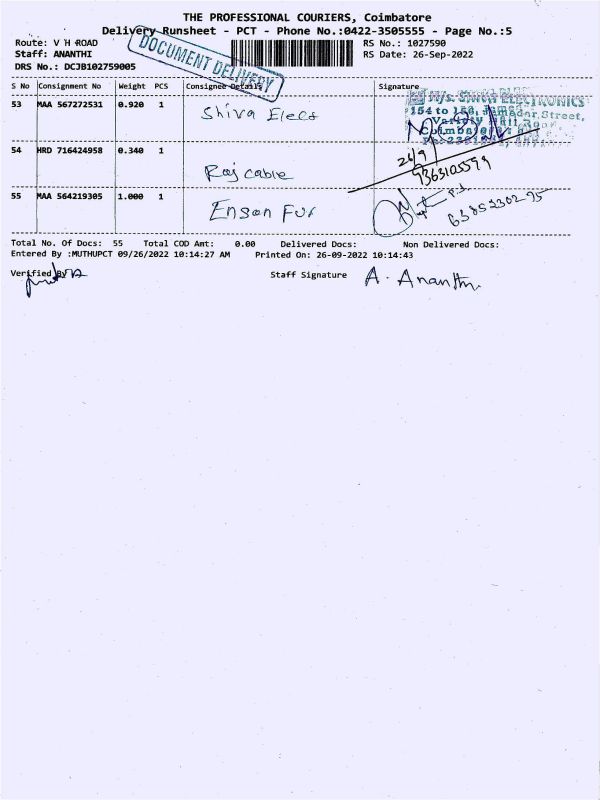 THE PROFESSIONAL COURIERS, Coimbatore
Delivery Runsheet - PCT - Phone No.:0422-3505555 - Page No.:5
Route: V H ROAD
RS No.: 1027590
Staff: ANANTHI
RS Date: 26-Sep-2022
DRS No.: DCJB102759005
DOCUMENT DELIVERY
S No Consignment No Weight PCS Consignee Details Signature
53 MAA 567272531 0.920 1 Shiva Elecs
154 to 156, Jamedar Street,
Variety Hall Road
Coimbatore
54 HRD 716424958 0.340 1 Raj cable
26/9
9363105599
55 MAA 564219305 1.000 1 Enson Fur
Total No. Of Docs: 55 Total COD Amt: 0.00 Delivered Docs: Non Delivered Docs:
Entered By :MUTHUPCT 09/26/2022 10:14:27 AM Printed On: 26-09-2022 10:14:43
Verified By
Staff Signature A. Ananthi